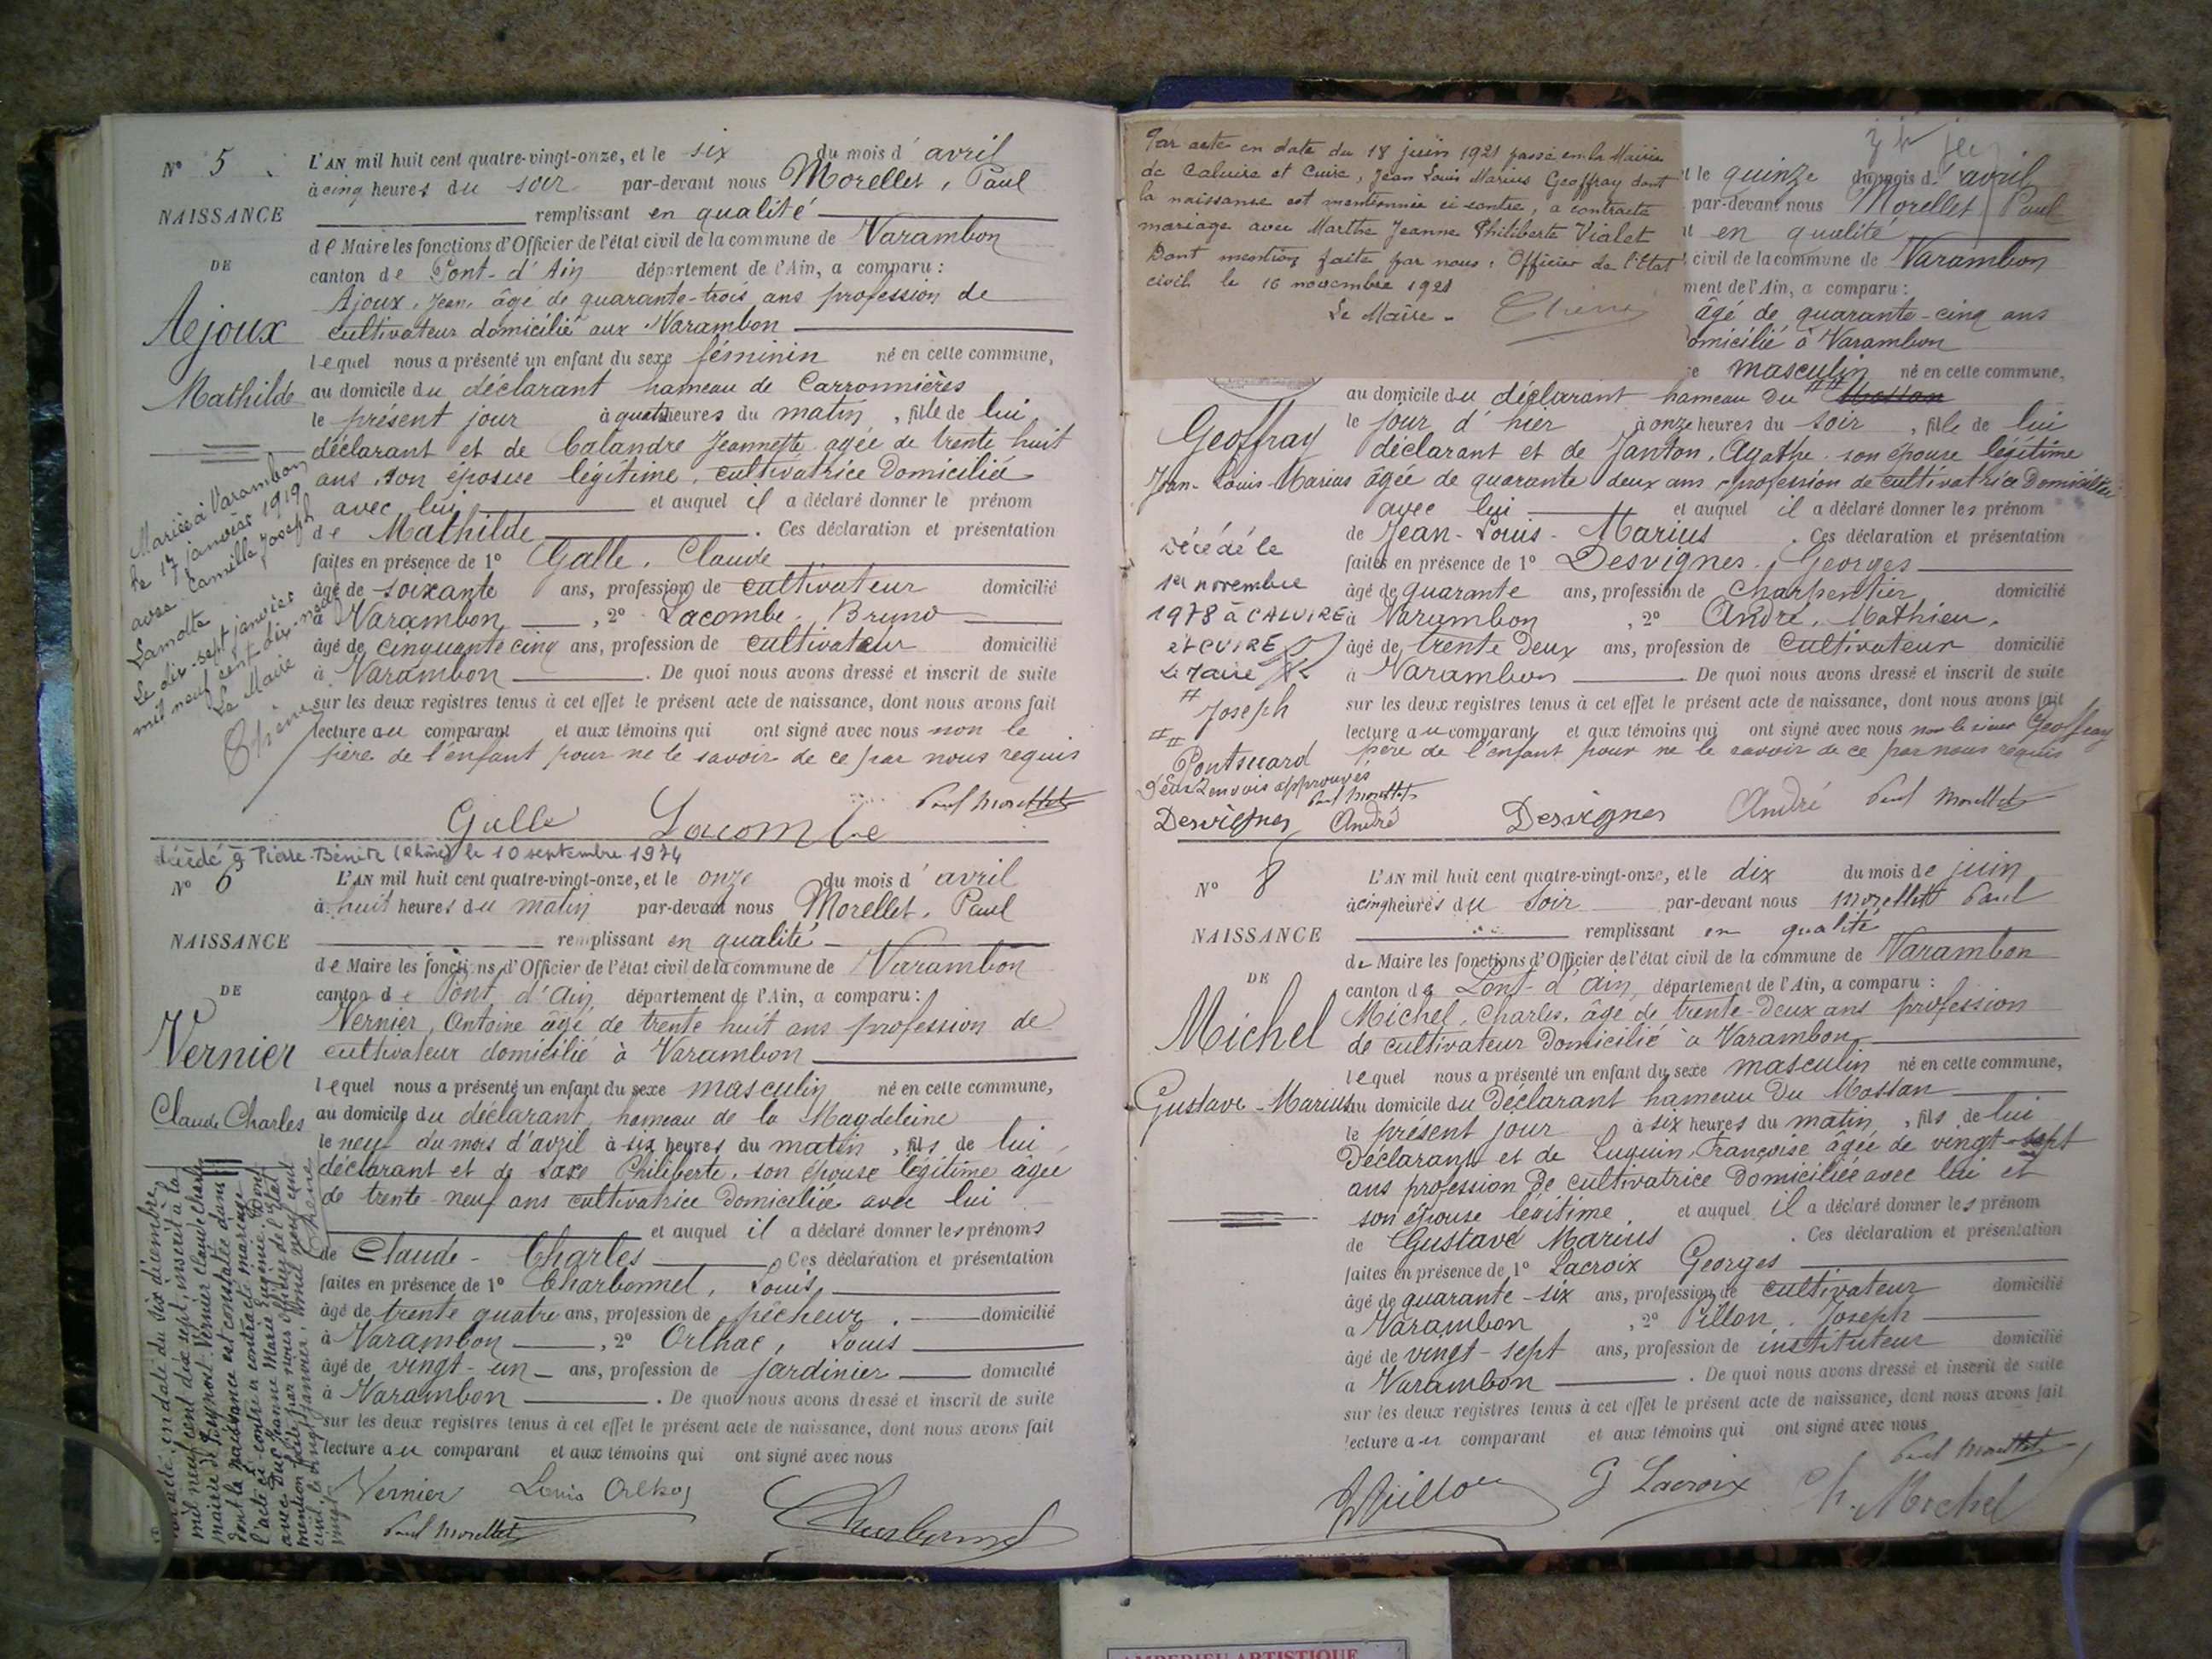 N° 5
NAISSANCE
DE
Ajoux
Mathilde
Mariée à Varambon
le 17 janvier 1919
avec Camille Joseph
Lamotte
Le dix-sept janvier
mil neuf cent dix-neuf
Le Maire
L'AN mil huit cent quatre-vingt-onze, et le six du mois d'avril
à cinq heures du soir par-devant nous Morellet, Paul
remplissant en qualité
de Maire les fonctions d'Officier de l'état civil de la commune de Varambon
canton de Pont-d'Ain département de l'Ain, a comparu :
Ajoux, Jean, âgé de quarante-trois ans profession de
cultivateur domicilié aux Varambon
lequel nous a présenté un enfant du sexe féminin né en cette commune,
au domicile du déclarant hameau de Carronnières
le présent jour à quatre heures du matin, fille de lui
déclarant et de Calandre Jeannette agée de trente huit
ans, son épouse légitime, cultivatrice Domiciliée
avec lui et auquel il a déclaré donner le prénom
de Mathilde. Ces déclaration et présentation
faites en présence de 1° Galle, Claude
âgé de soixante ans, profession de cultivateur domicilié
à Varambon, 2° Lacombe, Bruno
âgé de cinquante cinq ans, profession de cultivateur domicilié
à Varambon. De quoi nous avons dressé et inscrit de suite
sur les deux registres tenus à cet effet le présent acte de naissance, dont nous avons fait
lecture au comparant et aux témoins qui ont signé avec nous non le
père de l'enfant pour ne le savoir de ce par nous requis
Paul Morellet
Galle Lacombe
décédé à Pierre-Bénite (Rhône) le 10 septembre 1974
N° 6
NAISSANCE
DE
Vernier
Claude Charles
en date du six décembre
mil neuf cent dix sept, inscrit à la
mairie de Vernier Claude Charles
dont la naissance est constatée dans
l'acte ci-contre a contracté mariage
avec Duc Jeanne Marie Eugénie Dont
mention faite par nous Officier de l'Etat
civil, le janvier mil neuf cent
L'AN mil huit cent quatre-vingt-onze, et le onze du mois d'avril
à huit heures du matin par-devant nous Morellet, Paul
remplissant en qualité
de Maire les fonctions d'Officier de l'état civil de la commune de Varambon
canton de Pont d'Ain département de l'Ain, a comparu :
Vernier, Antoine âgé de trente huit ans profession de
cultivateur domicilié à Varambon
lequel nous a présenté un enfant du sexe masculin né en cette commune,
au domicile du déclarant, hameau de la Magdeleine
le neuf du mois d'avril à six heures du matin, fils de lui
déclarant et de Saxe Philiberte, son épouse légitime âgée
de trente-neuf ans cultivatrice domiciliée avec lui
et auquel il a déclaré donner les prénoms
de Claude-Charles Ces déclaration et présentation
faites en présence de 1° Charbonnel, Louis,
âgé de trente quatre ans, profession de pêcheur. domicilié
à Varambon, 2° Orlhac, Louis
âgé de vingt-un ans, profession de jardinier domicilié
à Varambon. De quoi nous avons dressé et inscrit de suite
sur les deux registres tenus à cet effet le présent acte de naissance, dont nous avons fait
lecture au comparant et aux témoins qui ont signé avec nous
Vernier Louis Orlhac Charbonnel
Paul Morellet
Par acte en date du 18 juin 1921 passé en la Mairie
de Caluire et Cuire, Jean Louis Marius Geoffray dont
la naissance est mentionnée ci contre, a contracté
mariage avec Marthe Jeanne Philiberte Vialet
Dont mention faite par nous, Officier de l'Etat
civil le 16 novembre 1921
Le Maire
t le quinze du mois d'avril
par-devant nous Morellet Paul
en qualité
civil de la commune de Varambon
ment de l'Ain, a comparu :
âgé de quarante-cinq ans
omicilié à Varambon
e masculin né en cette commune,
au domicile du déclarant hameau du Mossan
Geoffray
Jean-Louis Marius
Décédé le
1er novembre
1978 à CALUIRE
ET CUIRE
Le Maire
Joseph
Pontsuard
Deux Renvois approuvés
Paul Morellet
Desvignes André
le jour d'hier à onze heures du soir, fils de lui
déclarant et de Janton, Agathe son épouse légitime
âgée de quarante deux ans, profession de cultivatrice Domiciliée
avec lui et auquel il a déclaré donner les prénom
de Jean-Louis-Marius. Ces déclaration et présentation
faites en présence de 1° Desvignes, Georges
âgé de quarante ans, profession de Charpentier domicilié
à Varambon, 2° André, Mathieu,
âgé de trente Deux ans, profession de cultivateur domicilié
à Varambon. De quoi nous avons dressé et inscrit de suite
sur les deux registres tenus à cet effet le présent acte de naissance, dont nous avons fait
lecture au comparant et aux témoins qui ont signé avec nous non le sieur Geoffray
père de l'enfant pour ne le savoir de ce par nous requis
Desvignes André Paul Morellet
N° 8
NAISSANCE
DE
Michel
Gustave-Marius
L'AN mil huit cent quatre-vingt-onze, et le dix du mois de juin
à cinq heures du soir par-devant nous Morellet Paul
remplissant en qualité
de Maire les fonctions d'Officier de l'état civil de la commune de Varambon
canton de Pont-d'Ain, département de l'Ain, a comparu :
Michel, Charles, âgé de trente-Deux ans profession
de cultivateur Domicilié à Varambon
lequel nous a présenté un enfant du sexe masculin né en cette commune,
au domicile du Déclarant hameau Du Mossan
le présent jour à six heures du matin, fils de lui
Déclarant et de Luquin Françoise âgée de vingt-sept
ans profession De cultivatrice Domiciliée avec lui et
son épouse légitime. et auquel il a déclaré donner les prénom
de Gustave Marius. Ces déclaration et présentation
faites en présence de 1° Lacroix Georges
âgé de quarante-six ans, profession de cultivateur domicilié
à Varambon, 2° Pillon, Joseph
âgé de vingt-sept ans, profession de instituteur domicilié
à Varambon. De quoi nous avons dressé et inscrit de suite
sur les deux registres tenus à cet effet le présent acte de naissance, dont nous avons fait
lecture au comparant et aux témoins qui ont signé avec nous
Paul Morellet
JPillon G Lacroix Ch. Michel
AMBERIEU ARTISTIQUE